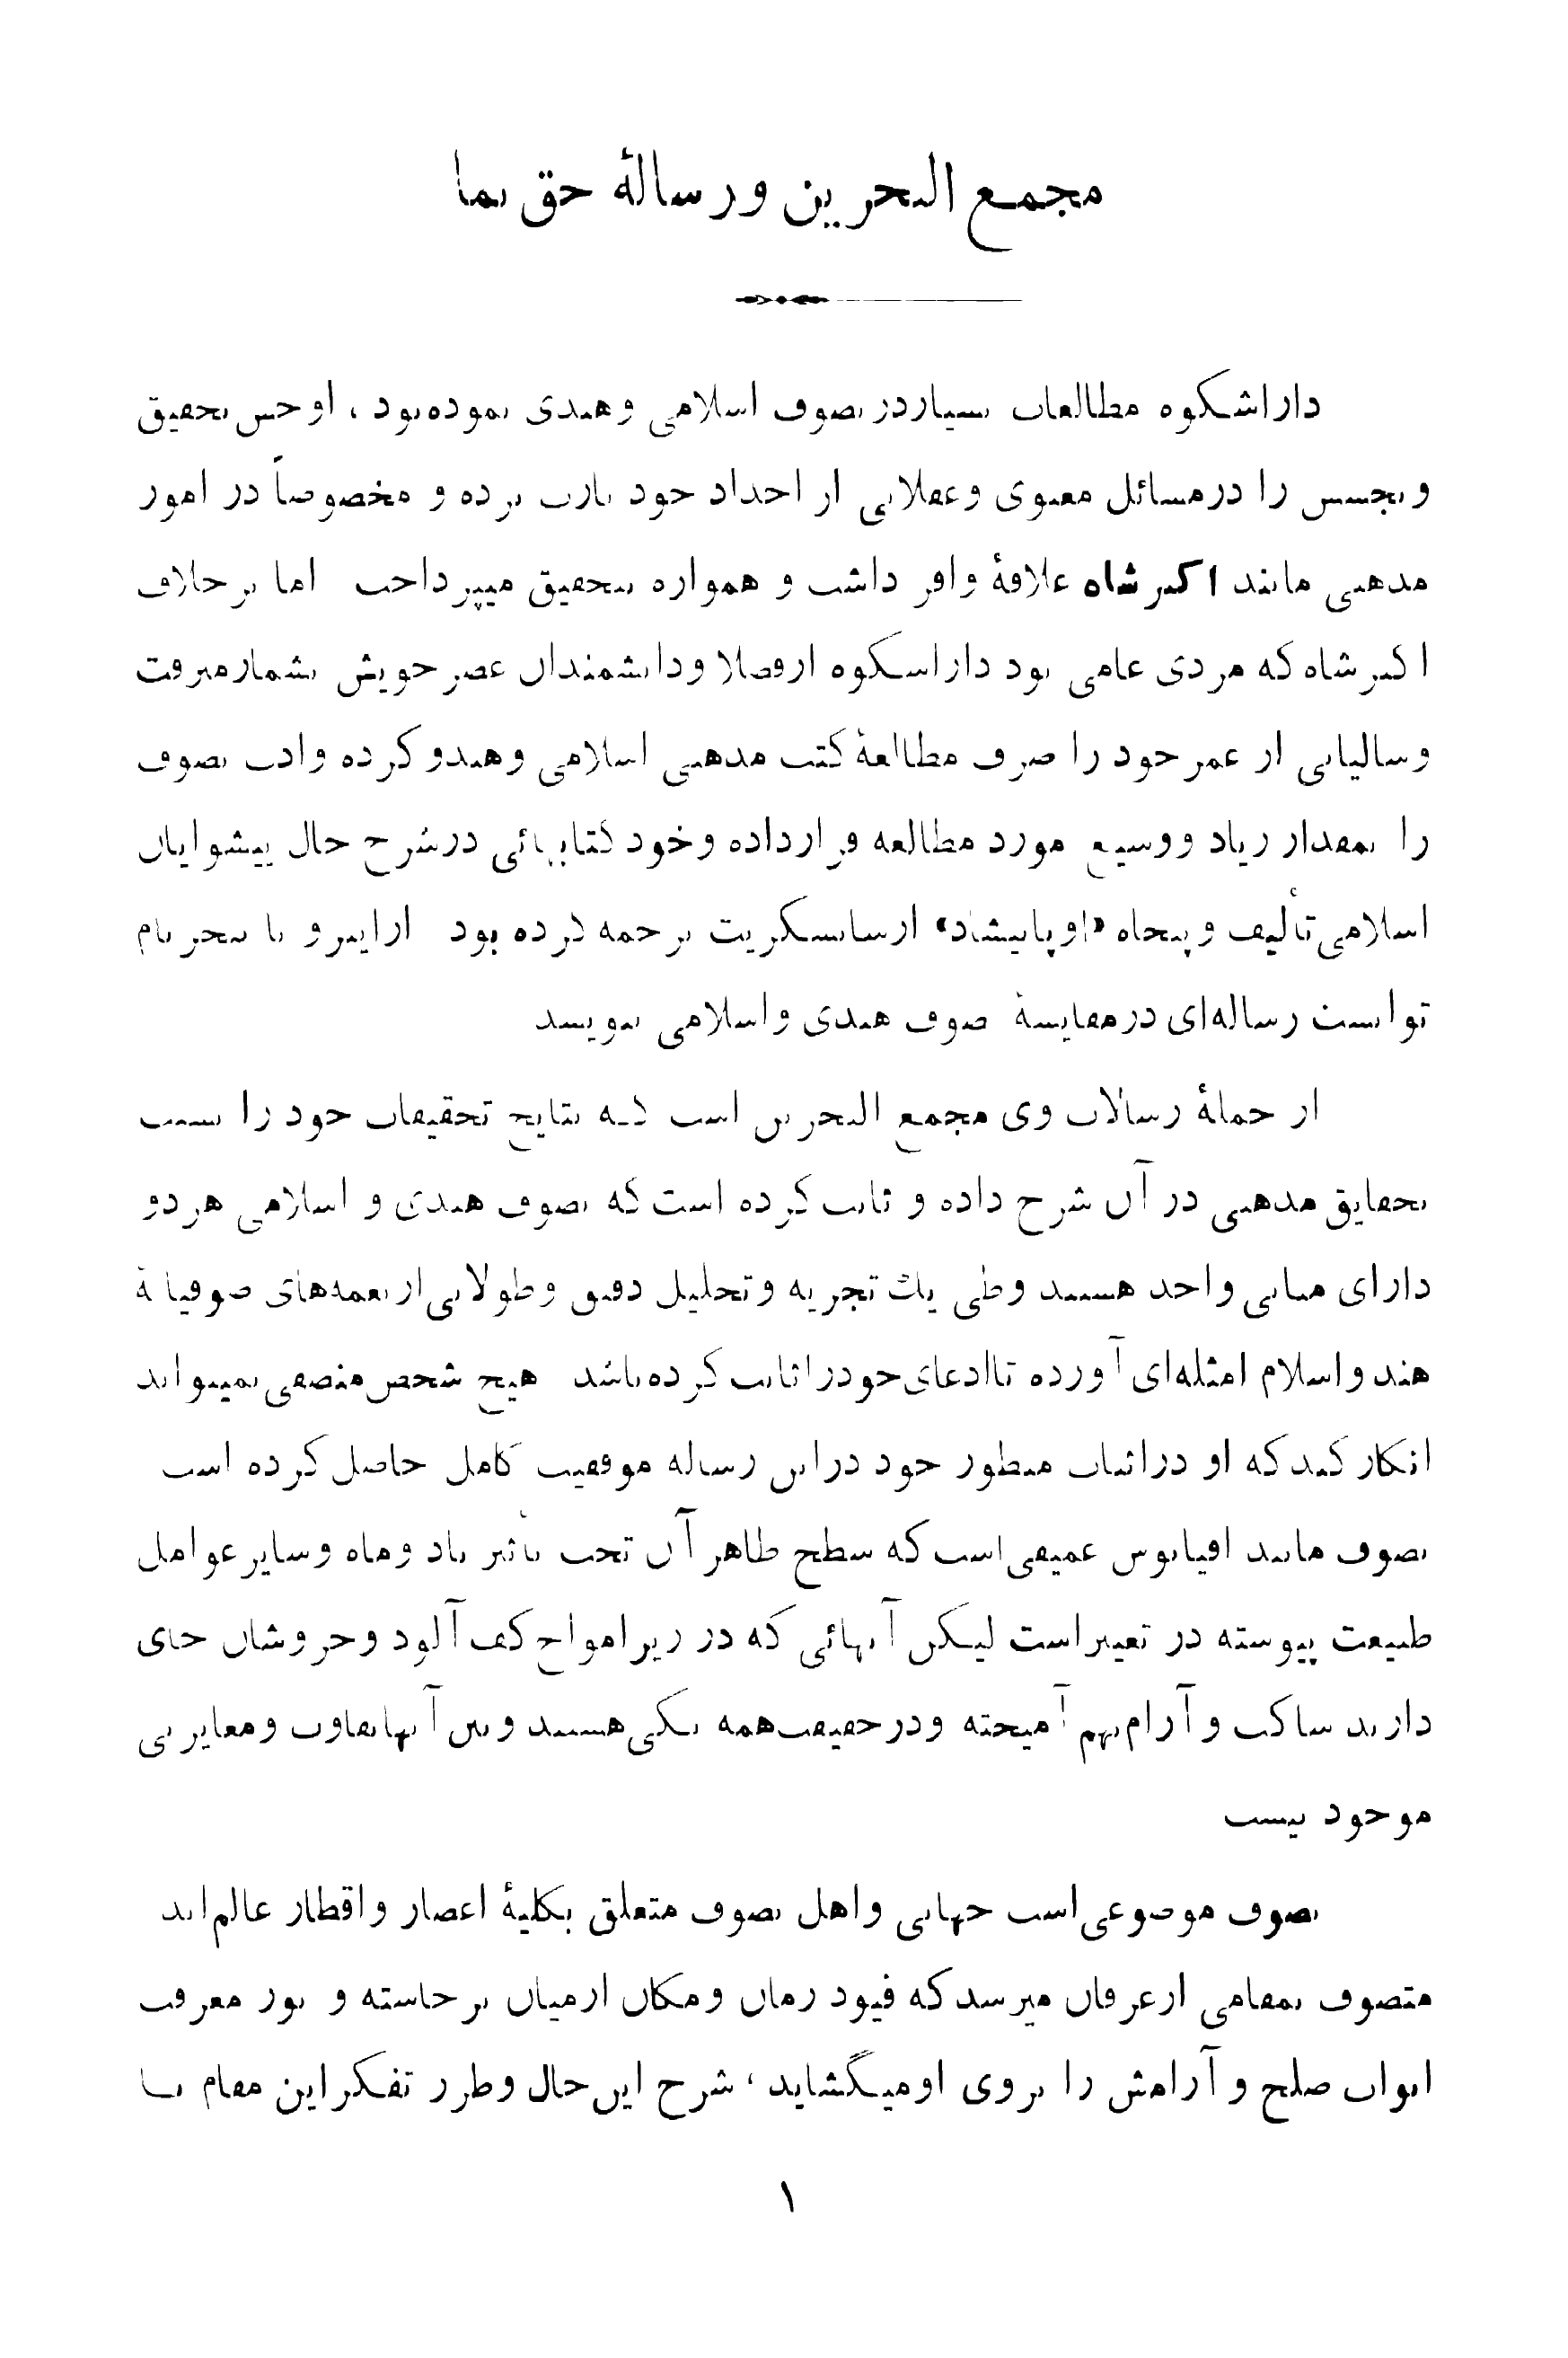 مجمع البحرین ورسالهٔ حق نما
داراشکوه مطالعات بسیاردرتصوف اسلامی وهندی نموده‌بود ، اوحس تحقیق
وتجسس را درمسائل معنوی وعقلانی از اجداد خود بارث برده و مخصوصاً در امور
مذهبی مانند اکبرشاه علاقهٔ وافر داشت و همواره بتحقیق میپرداخت اما برخلاف
اکبرشاه که مردی عامی بود داراشکوه ازفضلا ودانشمندان عصرخویش بشمارمیرفت
وسالیانی از عمرخود را صرف مطالعهٔ کتب مذهبی اسلامی وهندو کرده وادب تصوف
را بمقدار زیاد ووسیع مورد مطالعه قرارداده وخود کتابهائی درشرح حال پیشوایان
اسلامی تألیف وپنجاه «اوپانیشاد» ازسانسکریت ترجمه کرده بود ازاینرو با تبحر تام
توانست رساله‌ای درمقایسهٔ صوف هندی واسلامی بنویسد
از جملهٔ رسالات وی مجمع البحرین است که نتایج تحقیقات خود را نسبت
بحقایق مذهبی در آن شرح داده و ثابت کرده است که تصوف هندی و اسلامی هردو
دارای مبانی واحد هستند وطی یك تجزیه وتحلیل دقیق وطولانی‌از نغمه‌های صوفیانهٔ
هند واسلام امثله‌ای آورده تاادعای‌خودراثابت کرده‌باشد هیچ شخص منصفی نمیتواند
انکار کند که او دراثبات منظور خود دراین رساله موفقیت کامل حاصل کرده است
تصوف مانند اقیانوس عمیقی‌است که سطح ظاهرآن تحت تأثیر باد وماه وسایرعوامل
طبیعت پیوسته در تغییراست لیکن آبهائی که در زیرامواج کف‌آلود وخروشان جای
دارند ساکت وآرام‌بهم آمیخته ودرحقیقت‌همه یکی‌هستند وبین آنهاتفاوت ومغایرتی
موجود نیست
تصوف موضوعی‌است جهانی واهل تصوف متعلق بکلیهٔ اعصار واقطار عالم‌اند
متصوف بمقامی ازعرفان میرسدکه قیود زمان ومکان ازمیان برخاسته و نور معرفت
ابواب صلح وآرامش را بروی اومیگشاید ، شرح این‌حال وطرز تفکراین مقام با
۱